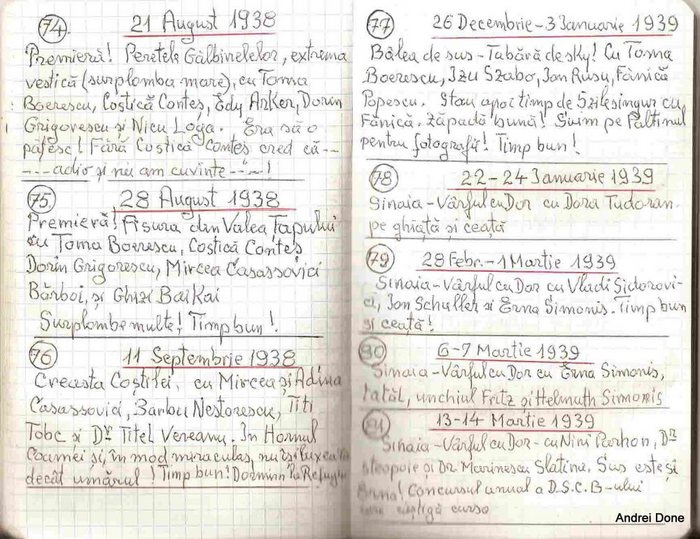 74 21 August 1938
Premieră! Peretele Gălbinelelor, extrema
vestică (surplomba mare), cu Toma
Boerescu, Costică Contes, Edy Anker, Dorin
Grigorescu și Nicu Loga. Era să o
pățesc! Fără Costică Contes cred că --
---- adio și nu am cuvinte --"--!
75 28 August 1938
Premieră! Fisura din Valea Țapului
cu Toma Boerescu, Costică Contes
Dorin Grigorescu, Mircea Casassovici
Bărboi, și Ghizi Bai Kai
Surplombe multe! Timp bun!
76 11 Septembrie 1938
Creasta Coștilei, cu Mircea și Adina
Casassovici, Barbu Nestorescu, Titi
Tobc și Dr Titel Vereanu. În Hornul
Coamei și, în mod miraculos, nu-și luxează
decât umărul! Timp bun! Dormim la Refugiu
77 26 Decembrie - 3 Ianuarie 1939
Bâlea de sus - Tabără de sky! Cu Toma
Boerescu, Izu Szabo, Ion Rusu, Fănică
Popescu. Stau apoi timp de 5 zile singur cu
Fănică. Zăpadă bună! Suim pe Paltinul
pentru fotografii! Timp bun!
78 22-24 Ianuarie 1939
Sinaia - Vârful cu Dor cu Dora Tudoran-
pe ghiață și ceață
79 28 Febr. - 1 Martie 1939
Sinaia - Vârful cu Dor cu Vladi Sidorovi-
ci, Ion Schuller și Erna Simonis. Timp bun
și ceață!
80 6-7 Martie 1939
Sinaia - Vârful cu Dor cu Erna Simonis,
tatăl, unchiul Fritz și Helmuth Simonis
81 13-14 Martie 1939
Sinaia - Vârful cu Dor - cu Nini Parhon, Dr
și Dr Marinescu Slatina, Sus este și
Erna! Concursul anual a D.S.C.B-ului
câștigă curso
Andrei Done